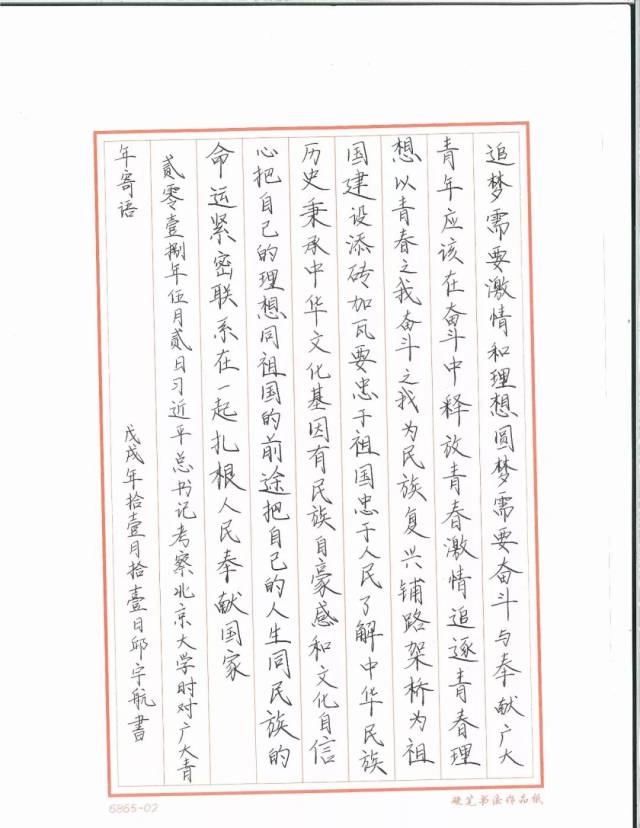 追梦需要激情和理想圆梦需要奋斗与奉献广大
青年应该在奋斗中释放青春激情追逐青春理
想以青春之我奋斗之我为民族复兴铺路架桥为祖
国建设添砖加瓦要忠于祖国忠于人民了解中华民族
历史秉承中华文化基因有民族自豪感和文化自信
心把自己的理想同祖国的前途把自己的人生同民族的
命运紧密联系在一起扎根人民奉献国家
贰零壹捌年伍月贰日习近平总书记考察北京大学时对广大青
年寄语
戊戌年拾壹月拾壹日邱宇航書
6865-02
硬笔书法作品纸